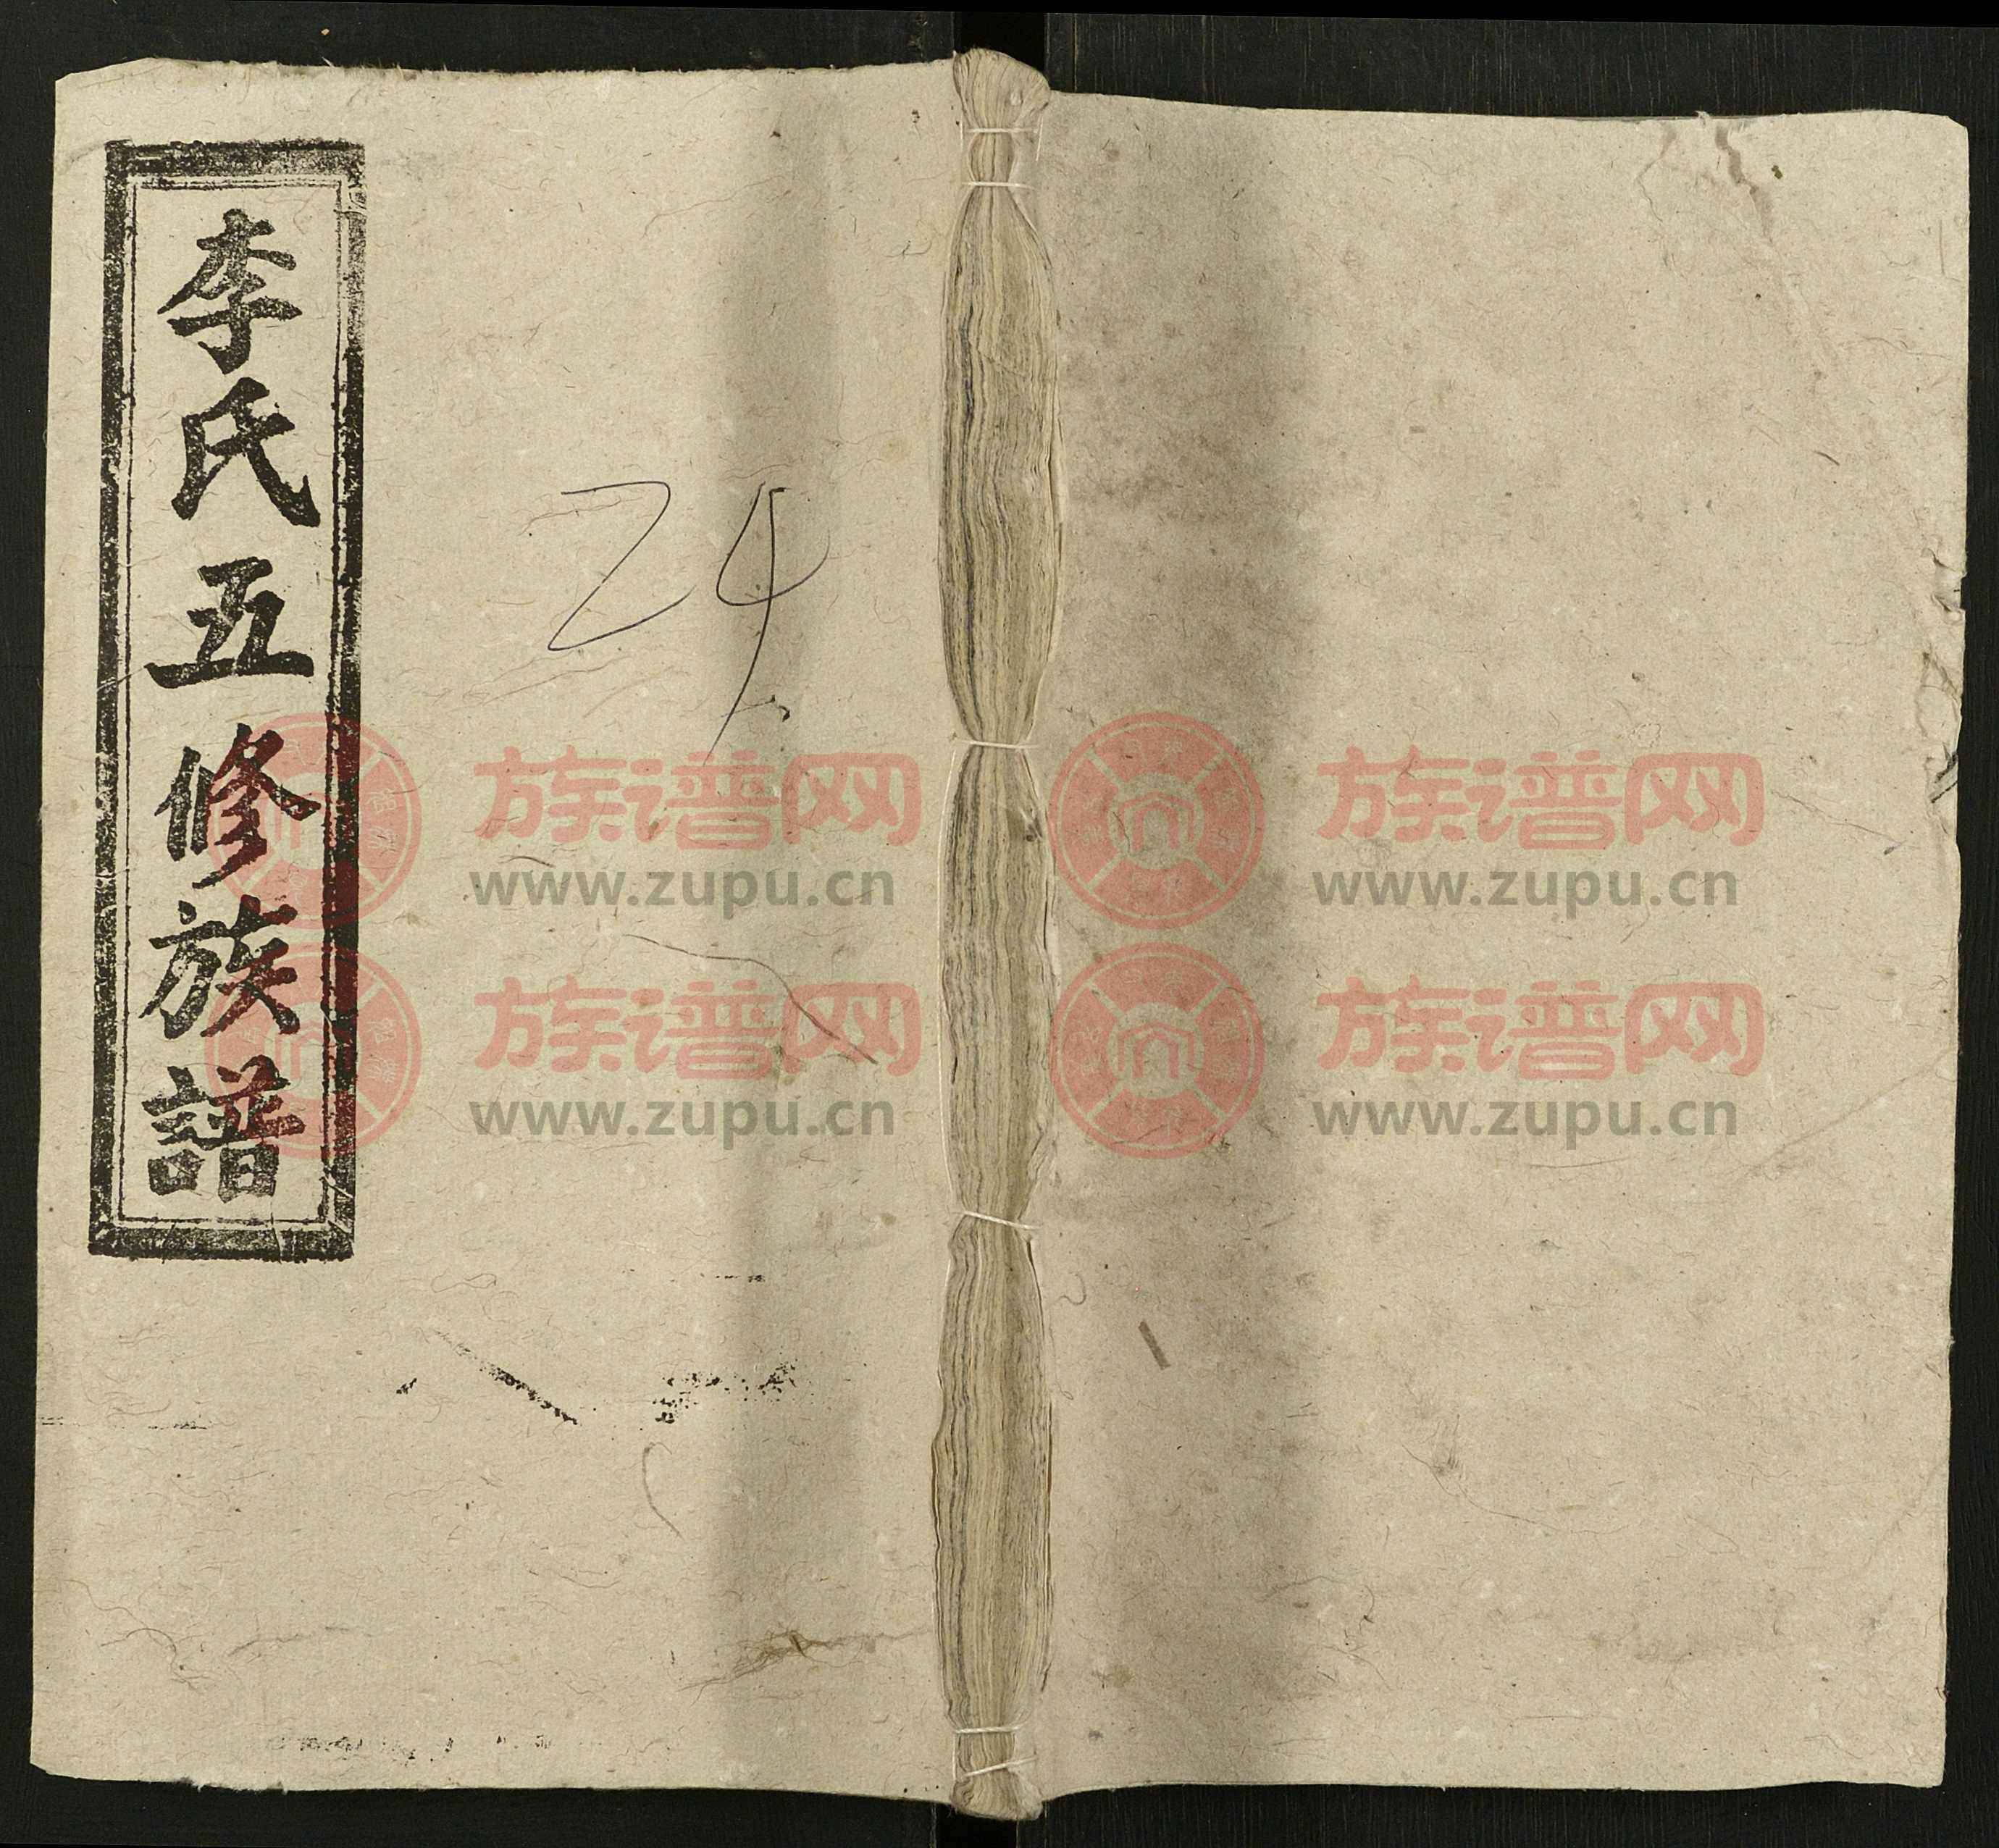 李氏五修族譜
24
族谱网
www.zupu.cn
族谱网
www.zupu.cn
族谱网
www.zupu.cn
族谱网
www.zupu.cn